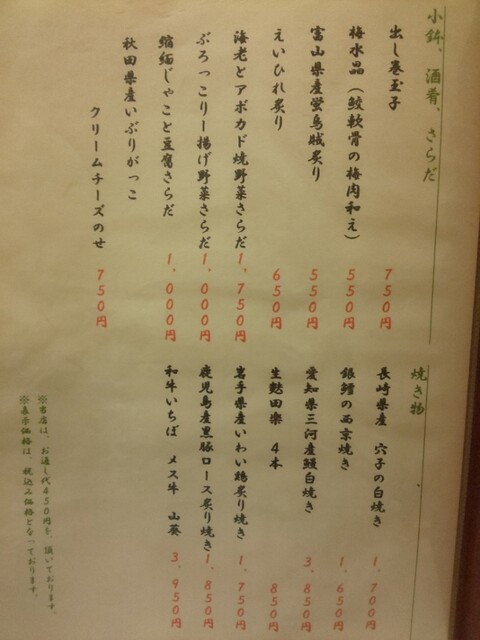 小鉢、酒肴、さらだ
出し巻玉子 750円
梅水晶（鮫軟骨の梅肉和え） 550円
富山県産蛍烏賊炙り 550円
えいひれ炙り 650円
海老とアボカド焼野菜さらだ 1,750円
ぶろっこりー揚げ野菜さらだ 1,000円
縮緬じゃこと豆腐さらだ 1,000円
秋田県産いぶりがっこ
クリームチーズのせ 750円
焼き物、
長崎県産 穴子の白焼き 1,700円
銀鱈の西京焼き 1,650円
愛知県三河産鰻白焼き 3,850円
生麩田楽 4本 850円
岩手県産いわい鶏炙り焼き 1,750円
鹿児島産黒豚ロース炙り焼き 1,850円
和牛いちぼ メス牛 山葵 3,950円
※当店は、お通し代450円を、頂いております。
※表示価格は、税込み価格となっております。